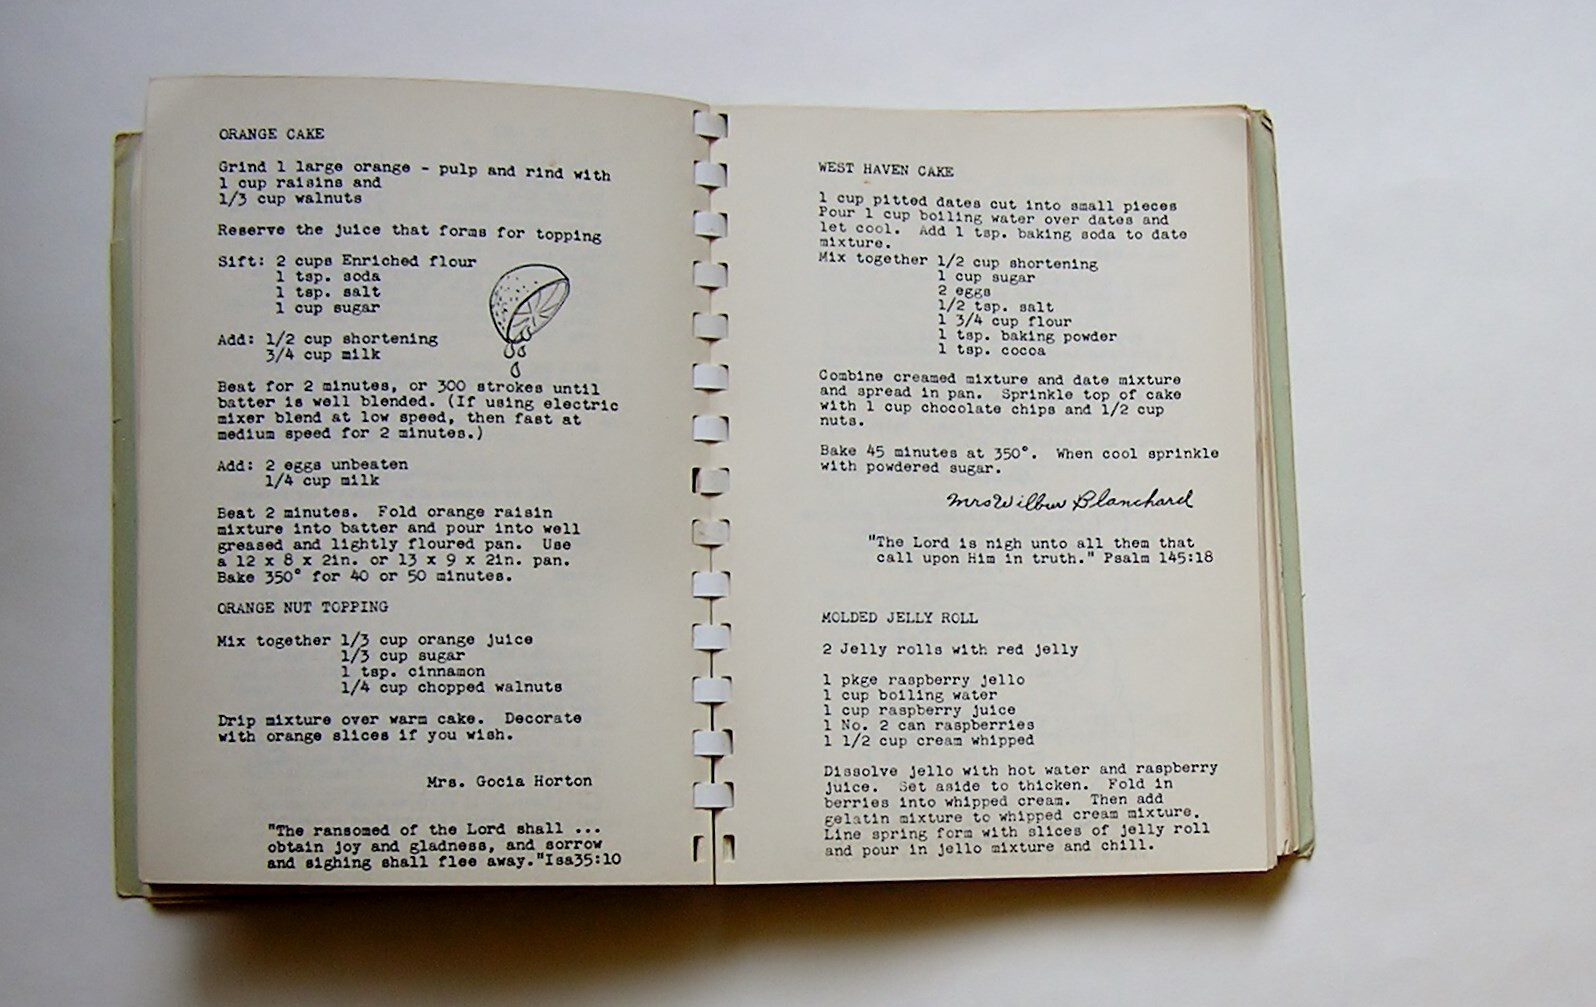 ORANGE CAKE
Grind 1 large orange - pulp and rind with
1 cup raisins and
1/3 cup walnuts
Reserve the juice that forms for topping
Sift: 2 cups Enriched flour
1 tsp. soda
1 tsp. salt
1 cup sugar
Add: 1/2 cup shortening
3/4 cup milk
Beat for 2 minutes, or 300 strokes until
batter is well blended. (If using electric
mixer blend at low speed, then fast at
medium speed for 2 minutes.)
Add: 2 eggs unbeaten
1/4 cup milk
Beat 2 minutes. Fold orange raisin
mixture into batter and pour into well
greased and lightly floured pan. Use
a 12 x 8 x 2in. or 13 x 9 x 2in. pan.
Bake 350° for 40 or 50 minutes.
ORANGE NUT TOPPING
Mix together 1/3 cup orange juice
1/3 cup sugar
1 tsp. cinnamon
1/4 cup chopped walnuts
Drip mixture over warm cake. Decorate
with orange slices if you wish.
Mrs. Gocia Horton
"The ransomed of the Lord shall ...
obtain joy and gladness, and sorrow
and sighing shall flee away."Isa35:10
WEST HAVEN CAKE
1 cup pitted dates cut into small pieces
Pour 1 cup boiling water over dates and
let cool. Add 1 tsp. baking soda to date
mixture.
Mix together 1/2 cup shortening
1 cup sugar
2 eggs
1/2 tsp. salt
1 3/4 cup flour
1 tsp. baking powder
1 tsp. cocoa
Combine creamed mixture and date mixture
and spread in pan. Sprinkle top of cake
with 1 cup chocolate chips and 1/2 cup
nuts.
Bake 45 minutes at 350°. When cool sprinkle
with powdered sugar.
Mrs Wilbur Blanchard
"The Lord is nigh unto all them that
call upon Him in truth." Psalm 145:18
MOLDED JELLY ROLL
2 Jelly rolls with red jelly
1 pkge raspberry jello
1 cup boiling water
1 cup raspberry juice
1 No. 2 can raspberries
1 1/2 cup cream whipped
Dissolve jello with hot water and raspberry
juice. Set aside to thicken. Fold in
berries into whipped cream. Then add
gelatin mixture to whipped cream mixture.
Line spring form with slices of jelly roll
and pour in jello mixture and chill.